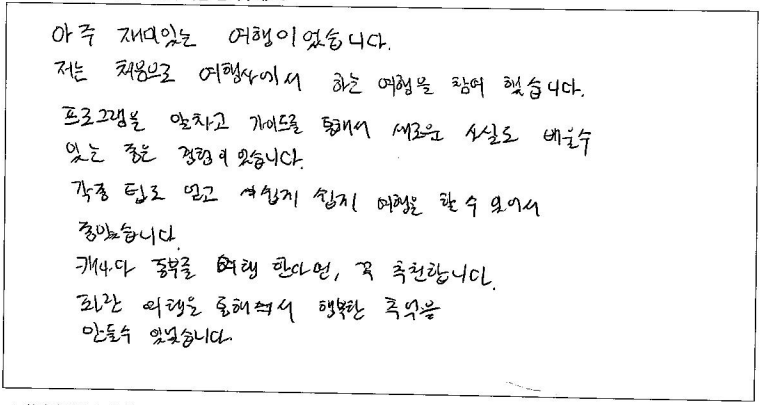 아주 재미있는 여행이었습니다.
저는 처음으로 여행사에서 하는 여행을 참여 했습니다.
프로그램을 알차고 가이드를 통해서 새로운 사실도 배울수
있는 좋은 경험이 었습니다.
각종 팁도 얻고 쉽지 쉽지 여행을 할 수 있어서
좋았습니다.
캐나다 동부를 여행 한다면, 꼭 추천합니다.
파란 여행을 통해서 행복한 추억을
만들수 있었습니다.